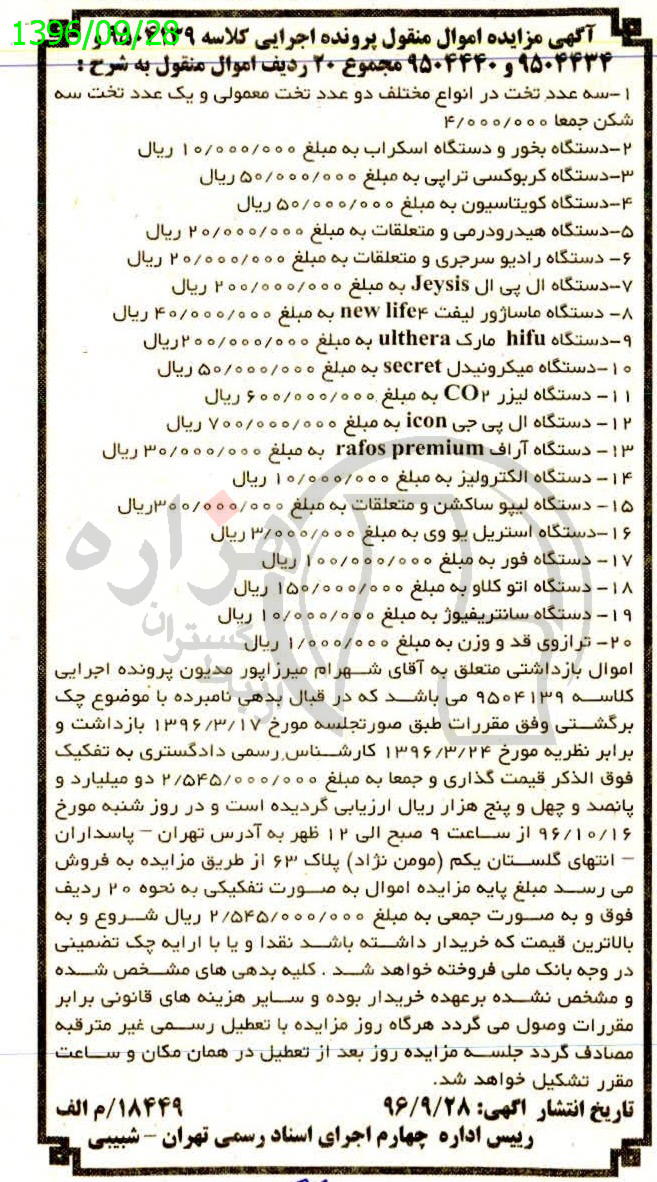 1396/09/28
آگهی مزایده اموال منقول پرونده اجرایی کلاسه ۹۵۰۴۱۳۹ و
۹۵۰۴۴۳۴ و ۹۵۰۴۴۴۰ مجموع ۲۰ ردیف اموال منقول به شرح :
۱-سه عدد تخت در انواع مختلف دو عدد تخت معمولی و یک عدد تخت سه
شکن جمعا ۴/۰۰۰/۰۰۰
۲-دستگاه بخور و دستگاه اسکراب به مبلغ ۱۰/۰۰۰/۰۰۰ ریال
۳-دستگاه کربوکسی تراپی به مبلغ ۵۰/۰۰۰/۰۰۰ ریال
۴-دستگاه کویتاسیون به مبلغ ۵۰/۰۰۰/۰۰۰ ریال
۵-دستگاه هیدرودرمی و متعلقات به مبلغ ۲۰/۰۰۰/۰۰۰ ریال
۶- دستگاه رادیو سرجری و متعلقات به مبلغ ۲۰/۰۰۰/۰۰۰ ریال
۷-دستگاه ال پی ال Jeysis به مبلغ ۲۰۰/۰۰۰/۰۰۰ ریال
۸- دستگاه ماساژور لیفت new life۴ به مبلغ ۴۰/۰۰۰/۰۰۰ ریال
۹-دستگاه hifu مارک ulthera به مبلغ ۲۰۰/۰۰۰/۰۰۰ریال
۱۰-دستگاه میکرونیدل secret به مبلغ ۵۰/۰۰۰/۰۰۰ ریال
۱۱- دستگاه لیزر CO۲ به مبلغ ۶۰۰/۰۰۰/۰۰۰ ریال
۱۲- دستگاه ال پی جی icon به مبلغ ۷۰۰/۰۰۰/۰۰۰ ریال
۱۳- دستگاه آراف rafos premium به مبلغ ۳۰/۰۰۰/۰۰۰ ریال
۱۴- دستگاه الکترولیز به مبلغ ۱۰/۰۰۰/۰۰۰ ریال
۱۵- دستگاه لیپو ساکشن و متعلقات به مبلغ ۳۰۰/۰۰۰/۰۰۰ریال
۱۶-دستگاه استریل یو وی به مبلغ ۳/۰۰۰/۰۰۰ ریال
۱۷- دستگاه فور به مبلغ ۱۰۰/۰۰۰/۰۰۰ ریال
۱۸- دستگاه اتو کلاو به مبلغ ۱۵۰/۰۰۰/۰۰۰ ریال
۱۹- دستگاه سانتریفیوژ به مبلغ ۱۰/۰۰۰/۰۰۰ ریال
۲۰- ترازوی قد و وزن به مبلغ ۱/۰۰۰/۰۰۰ ریال
اموال بازداشتی متعلق به آقای شهرام میرزاپور مدیون پرونده اجرایی
کلاسه ۹۵۰۴۱۳۹ می باشد که در قبال بدهی نامبرده با موضوع چک
برگشتی وفق مقررات طبق صورتجلسه مورخ ۱۳۹۶/۳/۱۷ بازداشت و
برابر نظریه مورخ ۱۳۹۶/۳/۲۴ کارشناس رسمی دادگستری به تفکیک
فوق الذکر قیمت گذاری و جمعا به مبلغ ۲/۵۴۵/۰۰۰/۰۰۰ دو میلیارد و
پانصد و چهل و پنج هزار ریال ارزیابی گردیده است و در روز شنبه مورخ
۹۶/۱۰/۱۶ از ساعت ۹ صبح الی ۱۲ ظهر به آدرس تهران – پاسداران
– انتهای گلستان یکم (مومن نژاد) پلاک ۶۳ از طریق مزایده به فروش
می رسد مبلغ پایه مزایده اموال به صورت تفکیکی به نحوه ۲۰ ردیف
فوق و به صورت جمعی به مبلغ ۲/۵۴۵/۰۰۰/۰۰۰ ریال شروع و به
بالاترین قیمت که خریدار داشته باشد نقدا و یا با ارایه چک تضمینی
در وجه بانک ملی فروخته خواهد شد . کلیه بدهی های مشخص شده
و مشخص نشده برعهده خریدار بوده و سایر هزینه های قانونی برابر
مقررات وصول می گردد هرگاه روز مزایده با تعطیل رسمی غیر مترقبه
مصادف گردد جلسه مزایده روز بعد از تعطیل در همان مکان و ساعت
مقرر تشکیل خواهد شد.
تاریخ انتشار اگهی: ۹۶/۹/۲۸ ۱۸۴۴۹/م الف
رییس اداره چهارم اجرای اسناد رسمی تهران – شبیبی
هزاره
گستران